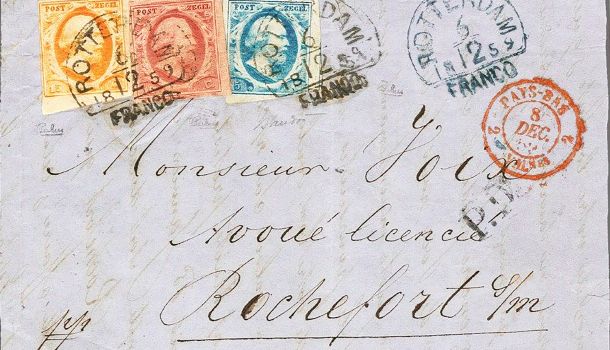 POST ZEGEL
POST ZEGEL
POST ZEGEL
ROTTERDAM
6
12
1859
FRANCO
ROTTERDAM
6
12
1859
FRANCO
ROTTERDAM
6
12
1859
FRANCO
PAYS-BAS
2 8 2
DEC.
P.D.
Monsieur Joix
Avoué licencié
Rochefort s/m
pp